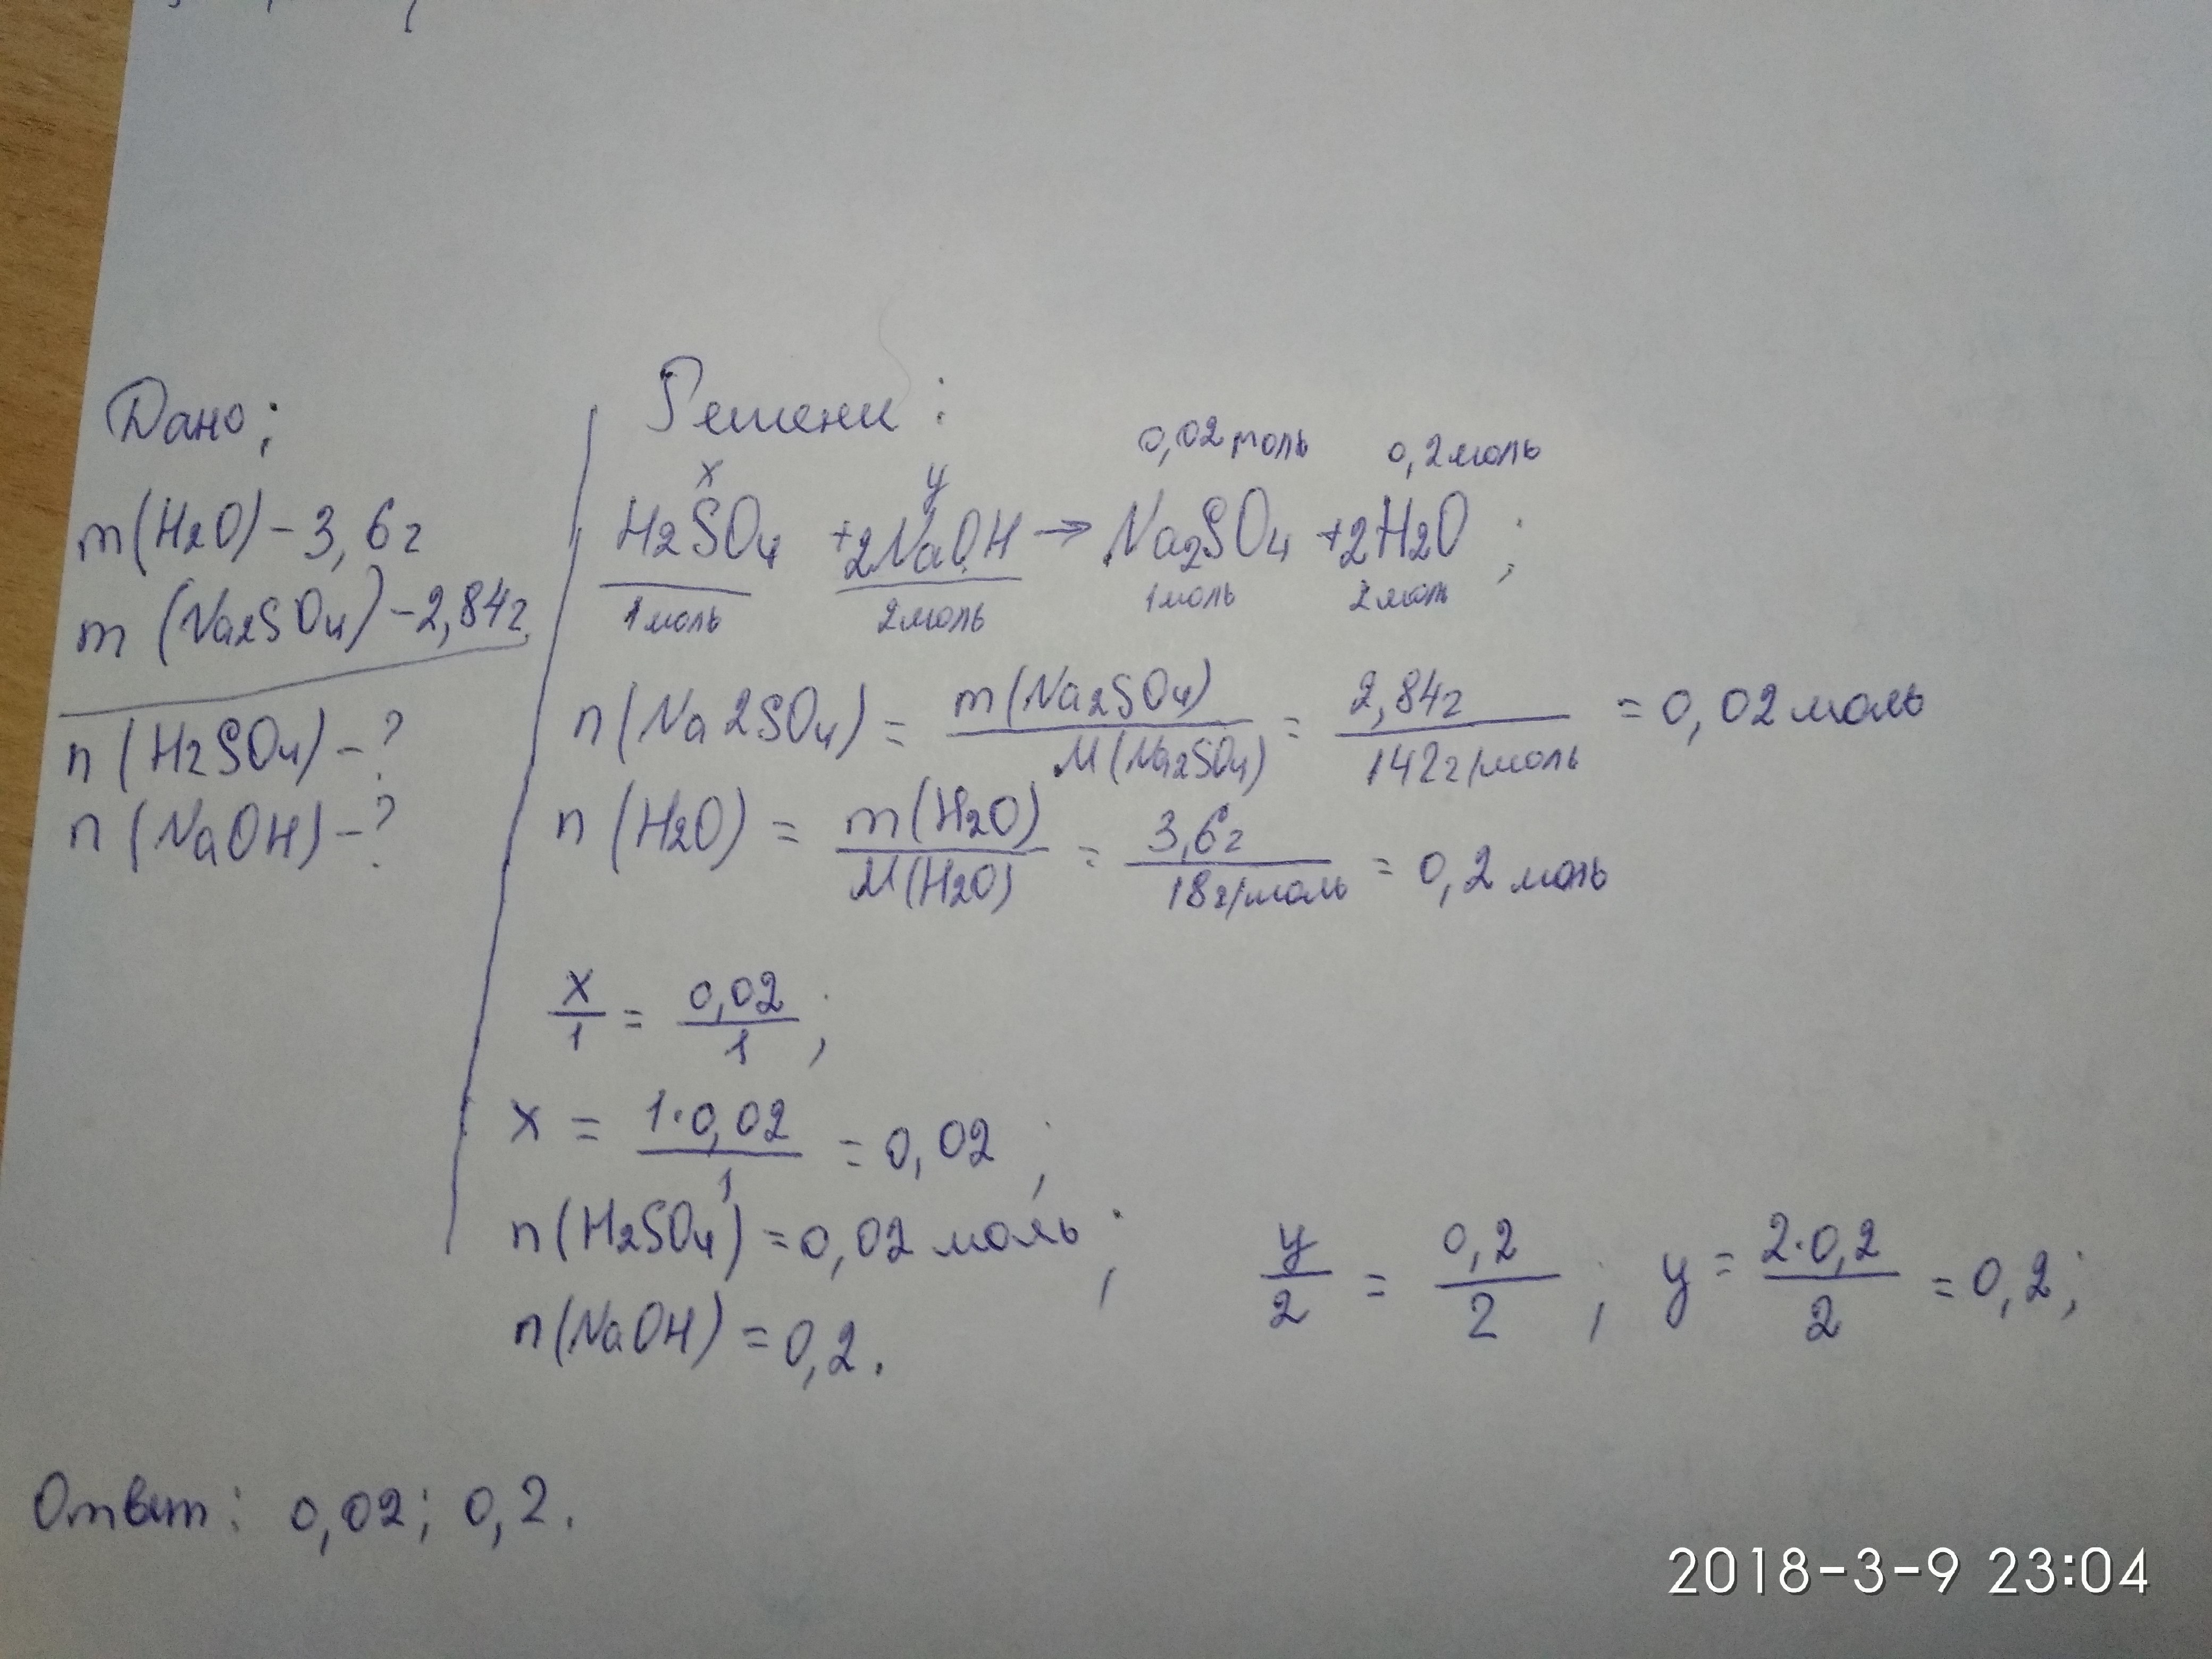 Дано;
m(H2O) - 3,6г
m(Na2SO4) - 2,84г
n(H2SO4) - ?
n(NaOH) - ?
Решени :
x y 0,02 моль 0,2 моль
H2SO4 + 2NaOH → Na2SO4 + 2H2O ;
1 моль 2 моль 1 моль 2 моль
n(Na2SO4) = m(Na2SO4) / M(Na2SO4) = 2,84г / 142г/моль = 0,02 моль
n(H2O) = m(H2O) / M(H2O) = 3,6г / 18г/моль = 0,2 моль
x/1 = 0,02/1 ;
x = 1·0,02 / 1 = 0,02 ;
n(H2SO4) = 0,02 моль ;
y/2 = 0,2/2 ; y = 2·0,2 / 2 = 0,2 ;
n(NaOH) = 0,2 .
Ответ : 0,02 ; 0,2 .
2018-3-9 23:04